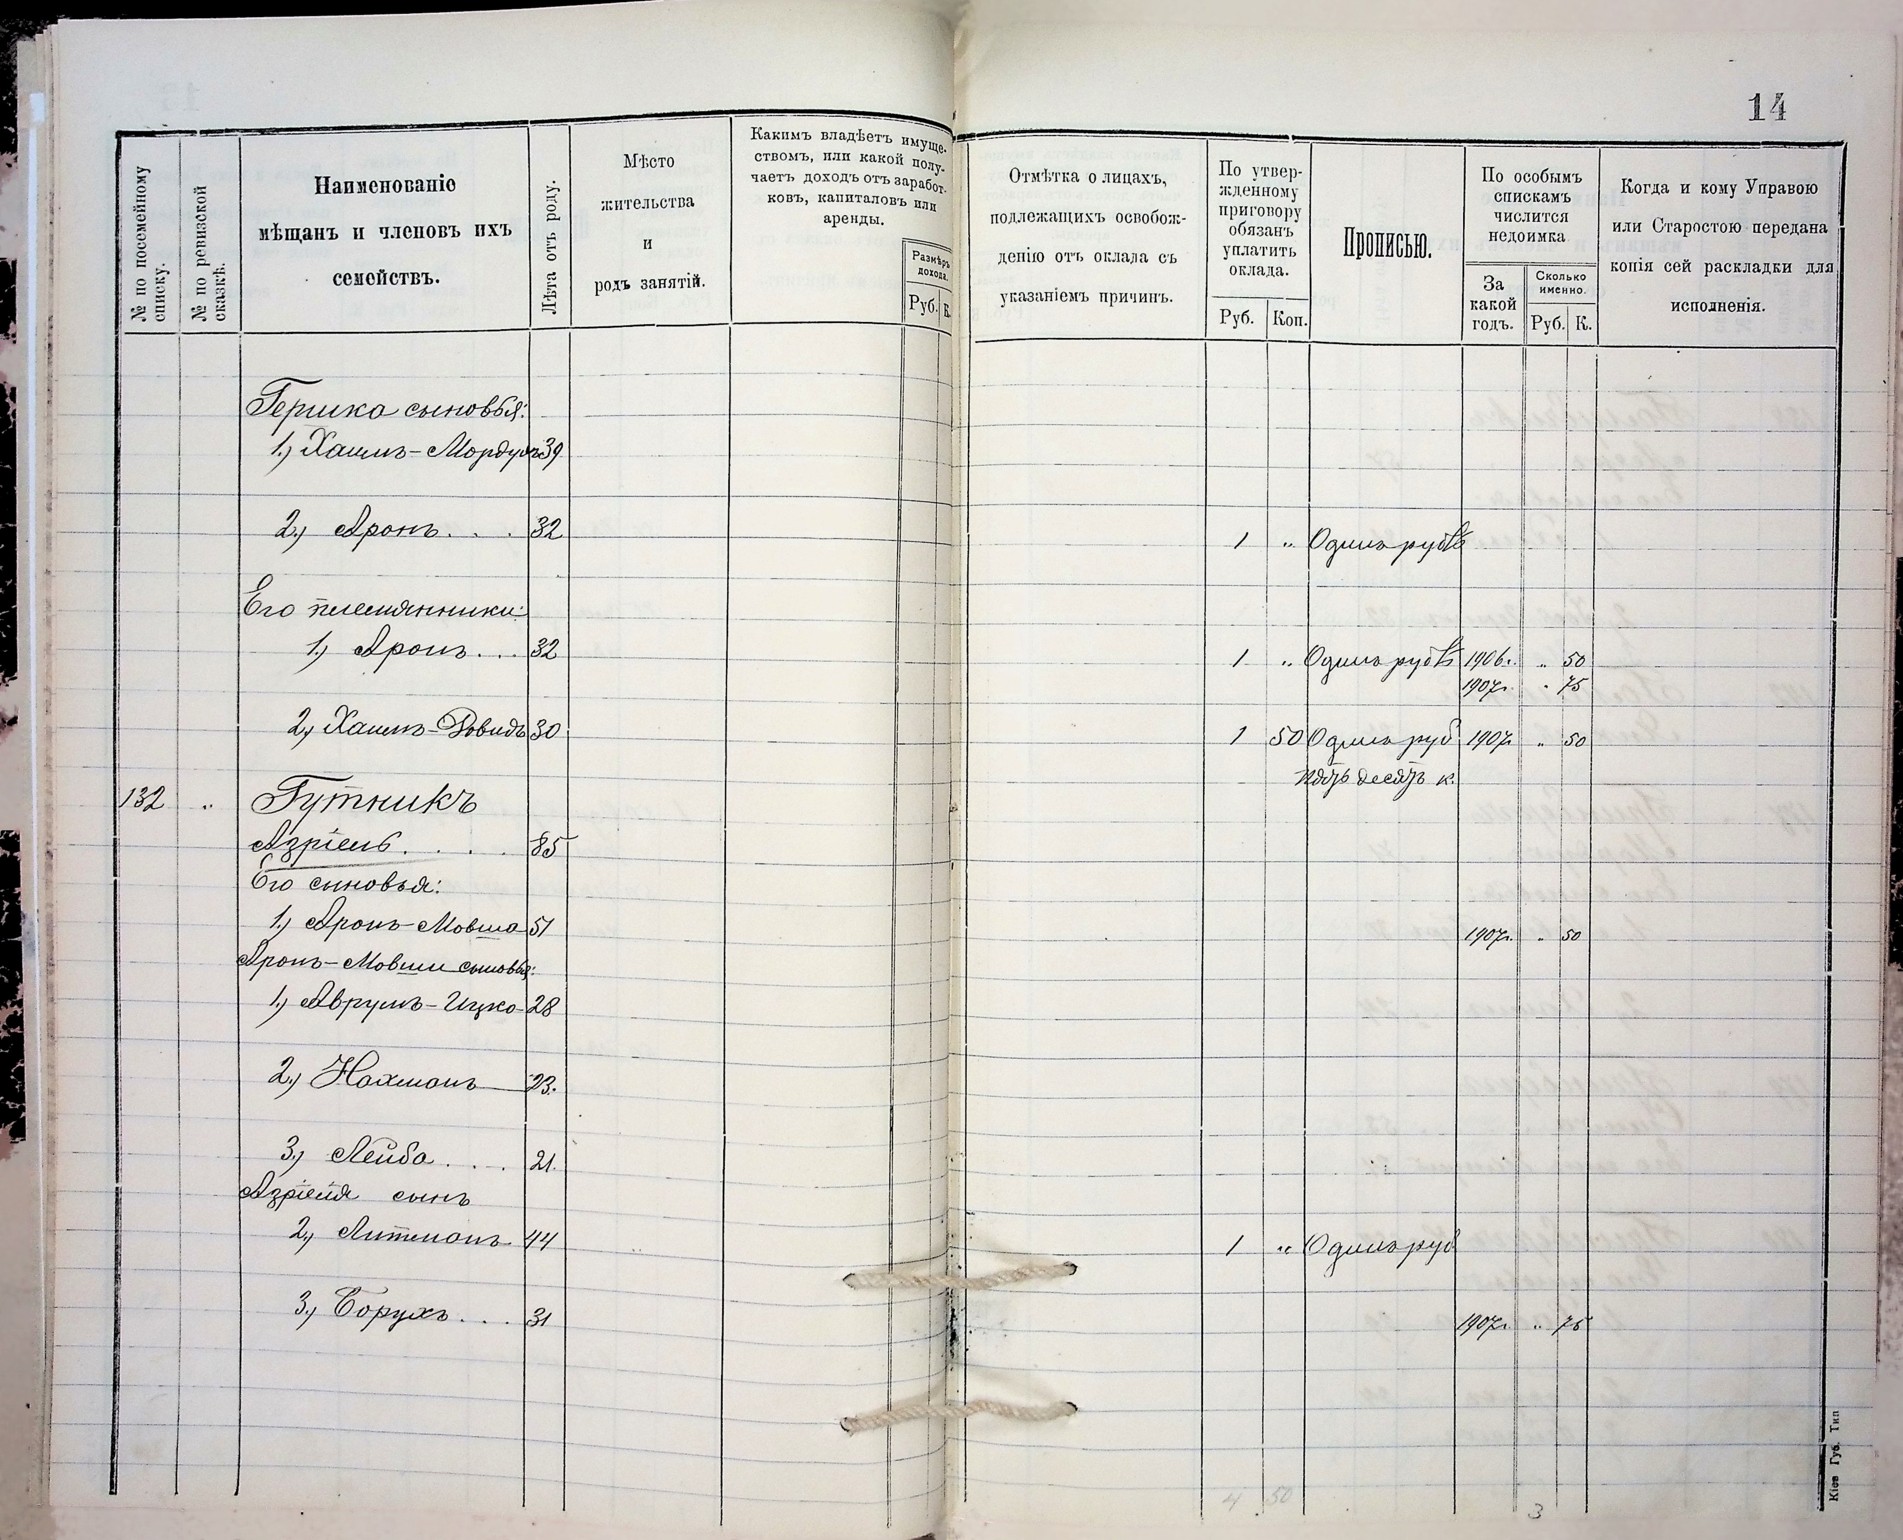 14
№ по посемейному списку.
№ по ревизской сказкѣ.
Наименованіе
мѣщанъ и членовъ ихъ
семействъ.
Лѣта отъ роду.
Мѣсто
жительства
и
родъ занятій.
Какимъ владѣетъ имуще-
ствомъ, или какой полу-
чаетъ доходъ отъ заработ-
ковъ, капиталовъ или
аренды.
Размѣръ
дохода.
Руб. К.
Отмѣтка о лицахъ,
подлежащихъ освобож-
денію отъ оклада съ
указаніемъ причинъ.
По утвер-
жденному
приговору
обязанъ
уплатить
оклада.
Руб. Коп.
Прописью.
По особымъ
спискамъ
числится
недоимка
За
какой
годъ.
Сколько
именно.
Руб. К.
Когда и кому Управою
или Старостою передана
копія сей раскладки для
исполненія.
Гершка сыновья:
1.) Хаимъ-Мордухъ 39
2.) Аронъ . . . 32 1 „ Одинъ рубль
Его племянники:
1.) Аронъ . . . 32 1 „ Одинъ рубль 1906г. „ 50
1907г. „ 75
2.) Хаимъ-Довидъ 30 1 50 Одинъ руб 1907г „ 50
пять десятъ к.
132 „ Гутникъ
Азріель . . . . 85
Его сыновья:
1.) Аронъ-Мовша 51 1907г. „ 50
Аронъ-Мовши сыновья:
1.) Аврумъ-Ицко 28
2.) Нахманъ 23.
3.) Лейба . . . 21.
Азріеля сынъ
2.) Литманъ 44 1 „ Одинъ руб
3.) Борухъ . . . 31 1907г. „ 75
4 50 3
Кіев Губ. Тип